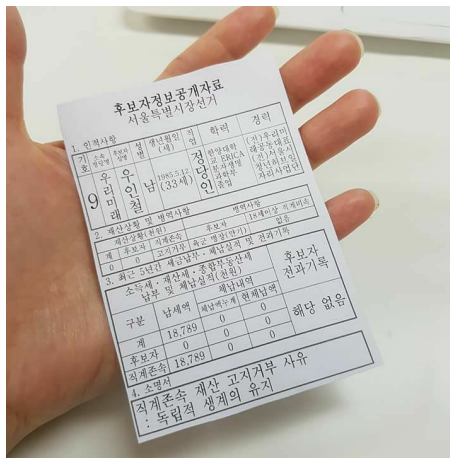 후보자정보공개자료
서울특별시장선거
1. 인적사항
기호 소속정당명 후보자성명 성별 생년월일(세) 직업 학력 경력
9 우리미래 우인철 남 1985.5.12. (33세) 정당인 한양대학교 ERICA 분자생명과학부 졸업 (전)우리미래공동대표 (전)서울시청년허브일자리사업단
2. 재산상황 및 병역사항
재산상황(천원) 병역사항
계 후보자 직계존속 후보자 18세이상 직계비속
0 0 고지거부 육군 병장(만기) 없음
3. 최근 5년간 세금납부·체납실적 및 전과기록
소득세·재산세·종합부동산세 납부 및 체납실적(천원) 후보자 전과기록
구분 납세액 체납내역
체납액누계 현체납액
계 18,789 0 0 해당 없음
후보자 0 0 0
직계존속 18,789 0 0
4. 소명서
직계존속 재산 고지거부 사유
: 독립적 생계의 유지